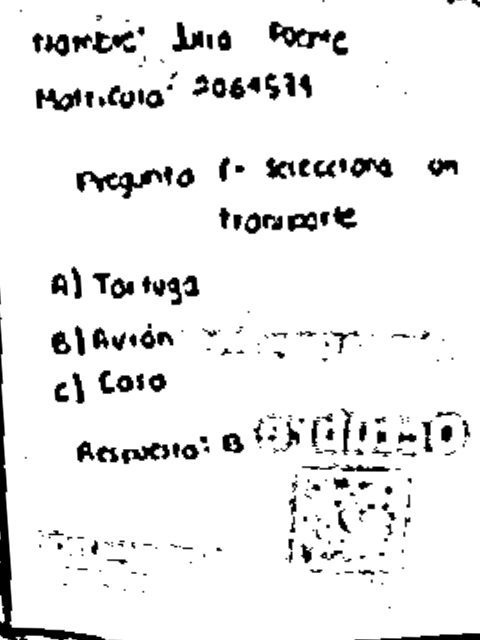 Nombre: Julio Puente
Matricula: 2064579
Pregunta 1- Selecciona un
transporte
A) Tortuga
B) Avión
C) Casa
Respuesta: B